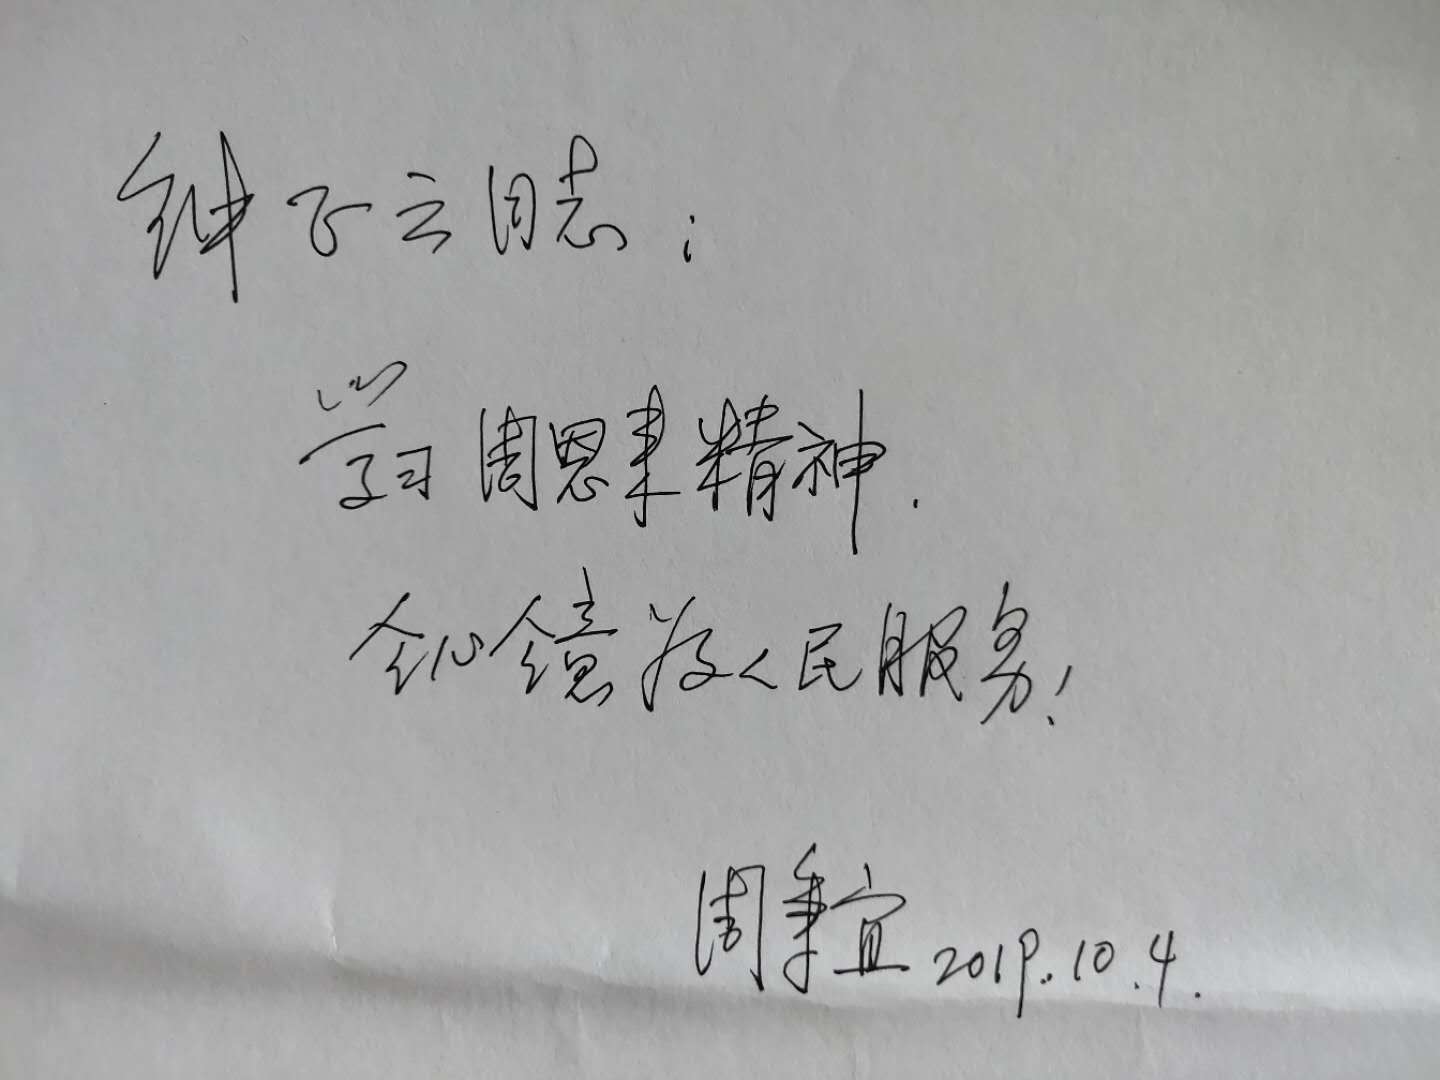 钟子云同志：
学习周恩来精神.
全心全意为人民服务！
周秉宜 2019.10.4.